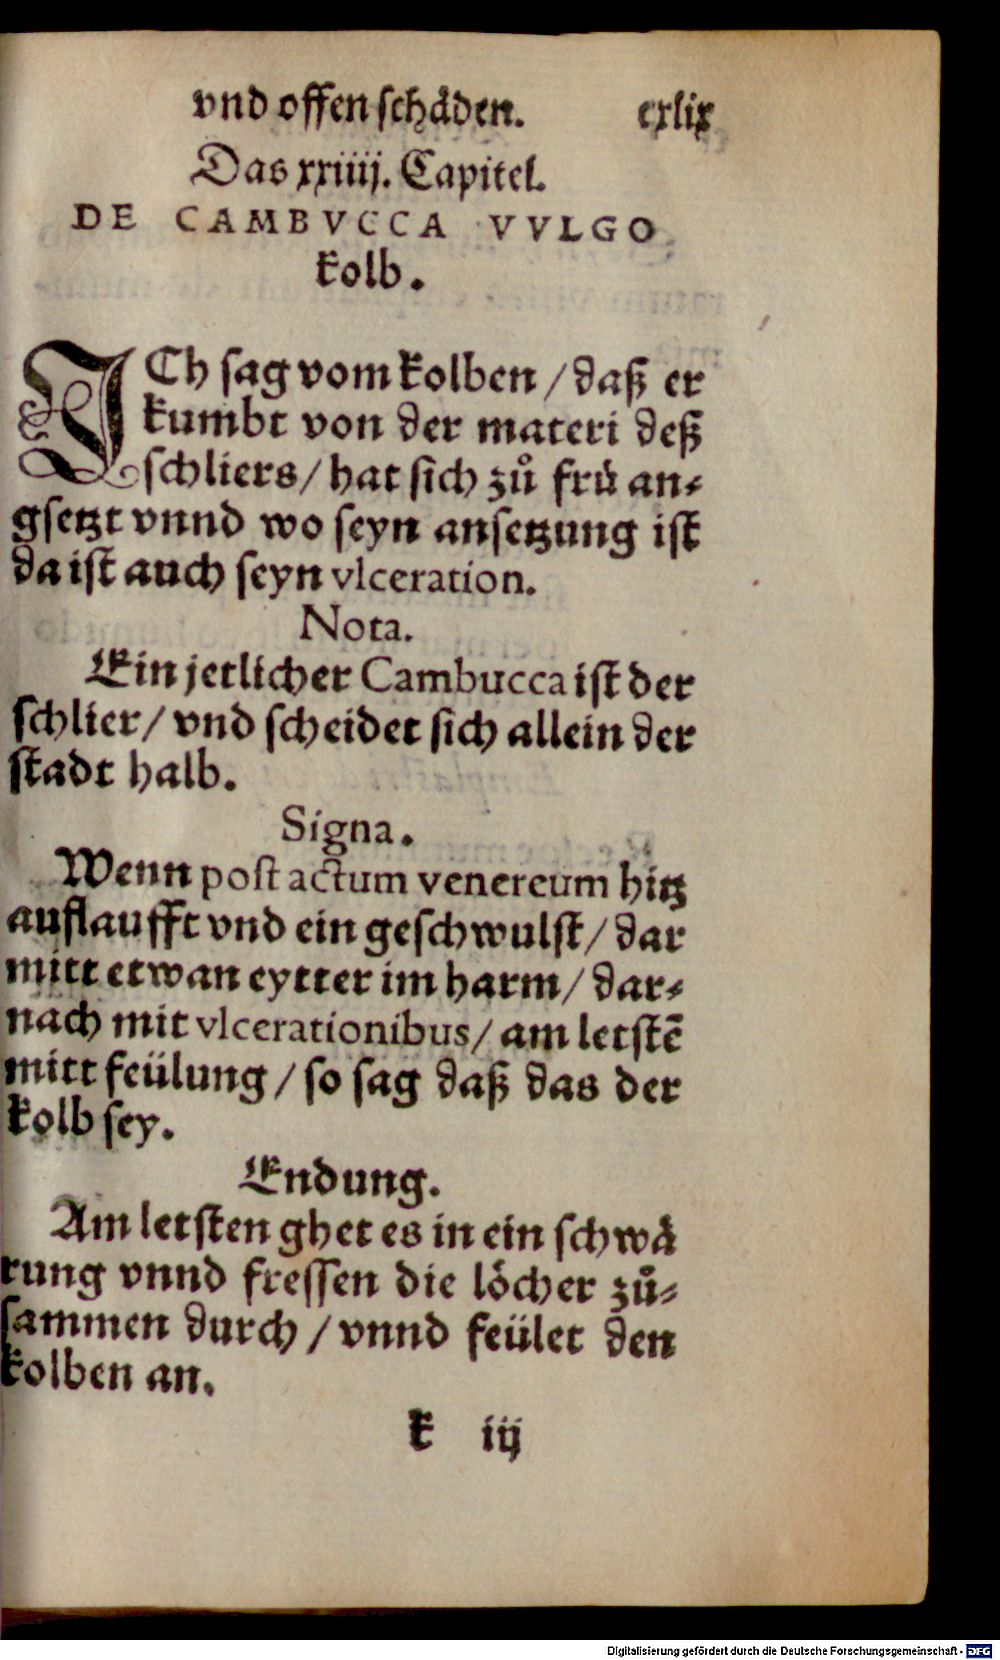 vnd offen schåden. cxlix
Das xxiiij. Capitel.
DE CAMBVCCA VVLGO
kolb.
ICh sag vom kolben / daß er
kumbt von der materi deß
schliers / hat sich zů frů an-
gsetzt vnnd wo seyn ansetzung ist
da ist auch seyn vlceration.
Nota.
Ein jetlicher Cambucca ist der
schlier / vnd scheidet sich allein der
stadt halb.
Signa.
Wenn post actum venereum hitz
auflaufft vnd ein geschwulst / dar
mitt etwan eytter im harm / dar-
nach mit vlcerationibus / am letstē
mitt feülung / so sag daß das der
kolb sey.
Endung.
Am letsten ghet es in ein schwå
rung vnnd fressen die löcher zů-
sammen durch / vnnd feület den
kolben an.
k iij
Digitalisierung gefördert durch die Deutsche Forschungsgemeinschaft - DFG